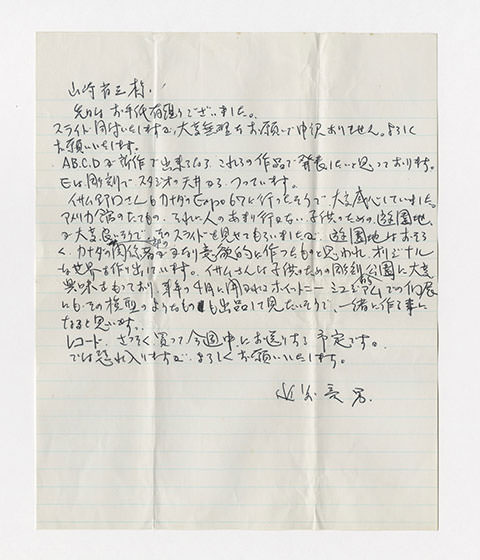 山崎省三様、
先日はお手紙有難うございました。
スライド同封いたしますが、大変無理なお願いで申訳ありません。よろしく
お願いいたします。
A.B.C.Dが新作で出来るなら、これらの作品で発表したいと思っております。
Eは彫刻でスタジオの天井からつっています。
イサム野口さんもカナダのExpo 67に行ったそうで、大変感心していました。
アメリカ館のたてもの、それに人のあまり行かない子供のための遊園地
が大変良いそうで、そのスライドを見せてもらいましたが、遊園地はおそら
く、カナダの関係者がかなり意欲的に作ったものと思われ、オリジナル
な世界を作り出しています。イサムさんは子供のための彫刻公園に大変
興味をもっており、来年の4月に開かれるホイットニーミュジアムでの個展
にも、その模型のようなものも出品して見たいそうで、一緒に作る事に
なると思います。
レコード、さっそく買って今週中にお送りする予定です。
では恐れ入りますが、よろしくお願いいたします。